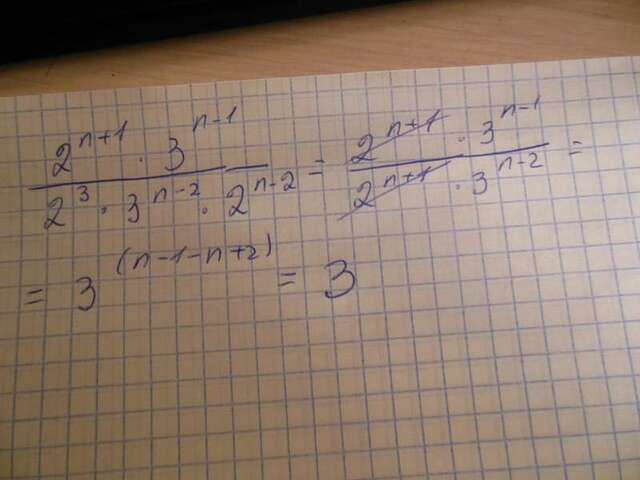 \frac{2^{n+1} \cdot 3^{n-1}}{2^3 \cdot 3^{n-2} \cdot 2^{n-2}} = \frac{2^{n+1} \cdot 3^{n-1}}{2^{n+1} \cdot 3^{n-2}} =
= 3^{(n-1-n+2)} = 3